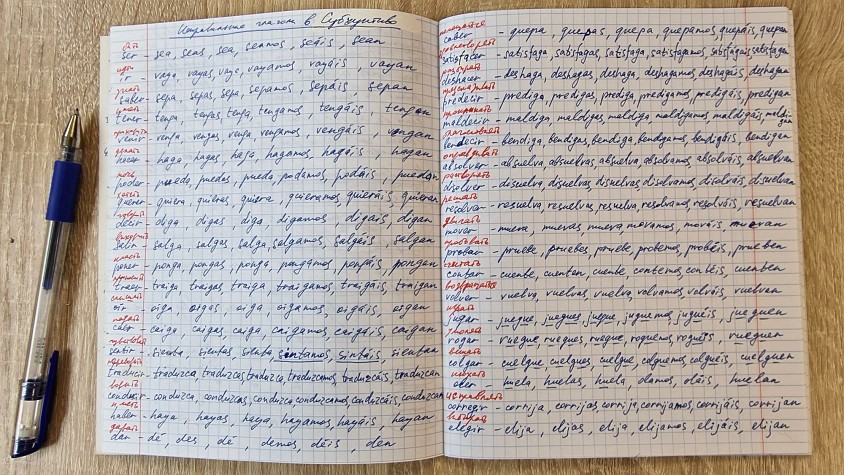 Неправильные глаголы в Субхунтиво
быть
ser - sea, seas, sea, seamos, seáis, sean
идти
ir - vaya, vayas, vaya, vayamos, vayáis, vayan
знать
saber - sepa, sepas, sepa, sepamos, sepáis, sepan
tener - tenga, tengas, tenga, tengamos, tengáis, tengan
приходить
venir - venga, vengas, venga, vengamos, vengáis, vengan
делать
hacer - haga, hagas, haga, hagamos, hagáis, hagan
мочь
poder - pueda, puedas, pueda, podamos, podáis, puedan
querer - quiera, quieras, quiera, queramos, queráis, quieran
decir - diga, digas, diga, digamos, digáis, digan
выходить
salir - salga, salgas, salga, salgamos, salgáis, salgan
poner - ponga, pongas, ponga, pongamos, pongáis, pongan
traer - traiga, traigas, traiga, traigamos, traigáis, traigan
слышать
oír - oiga, oigas, oiga, oigamos, oigáis, oigan
caer - caiga, caigas, caiga, caigamos, caigáis, caigan
чувствовать
sentir - sienta, sientas, sienta, sintamos, sintáis, sientan
переводить
traducir - traduzca, traduzcas, traduzca, traduzcamos, traduzcáis, traduzcan
водить
conducir - conduzca, conduzcas, conduzca, conduzcamos, conduzcáis, conduzcan
иметь
haber - haya, hayas, haya, hayamos, hayáis, hayan
давать
dar - dé, des, dé, demos, déis, den
caber - quepa, quepas, quepa, quepamos, quepáis, quepan
удовлетворять
satisfacer - satisfaga, satisfagas, satisfaga, satisfagamos, satisfagáis, satisfagan
deshacer - deshaga, deshagas, deshaga, deshagamos, deshagáis, deshagan
предсказывать
predecir - prediga, predigas, prediga, predigamos, predigáis, predigan
проклинать
maldecir - maldiga, maldigas, maldiga, maldigamos, maldigáis, maldigan
благословлять
bendecir - bendiga, bendigas, bendiga, bendigamos, bendigáis, bendigan
оправдывать
absolver - absuelva, absuelvas, absuelva, absolvamos, absolváis, absuelvan
растворять
disolver - disuelva, disuelvas, disuelva, disolvamos, disolváis, disuelvan
решать
resolver - resuelva, resuelvas, resuelva, resolvamos, resolváis, resuelvan
двигать
mover - mueva, muevas, mueva, movamos, mováis, muevan
пробовать
probar - pruebe, pruebes, pruebe, probemos, probéis, prueben
считать
contar - cuente, cuenten, cuente, contemos, contéis, cuenten
возвращаться
volver - vuelva, vuelvas, vuelva, volvamos, volváis, vuelvan
играть
jugar - juegue, juegues, juegue, juguemos, juguéis, jueguen
умолять
rogar - ruegue, ruegues, ruegue, roguemos, roguéis, rueguen
вешать
colgar - cuelgue, cuelgues, cuelgue, colguemos, colguéis, cuelguen
нюхать
oler - huela, huelas, huela, olamos, oláis, huelan
исправлять
corregir - corrija, corrijas, corrija, corrijamos, corrijáis, corrijan
elegir - elija, elijas, elija, elijamos, elijáis, elijan